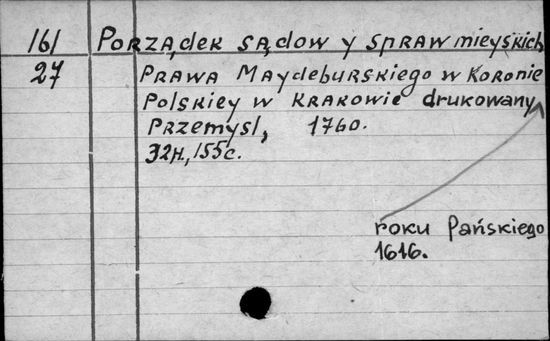 161 Porządek sądow y spraw mieyskich
27 Prawa Maydeburskiego w Koronie
Polskiey w Krakowie drukowany
Przemysl, 1760.
32н., 155с.
roku Pańskiego
1616.